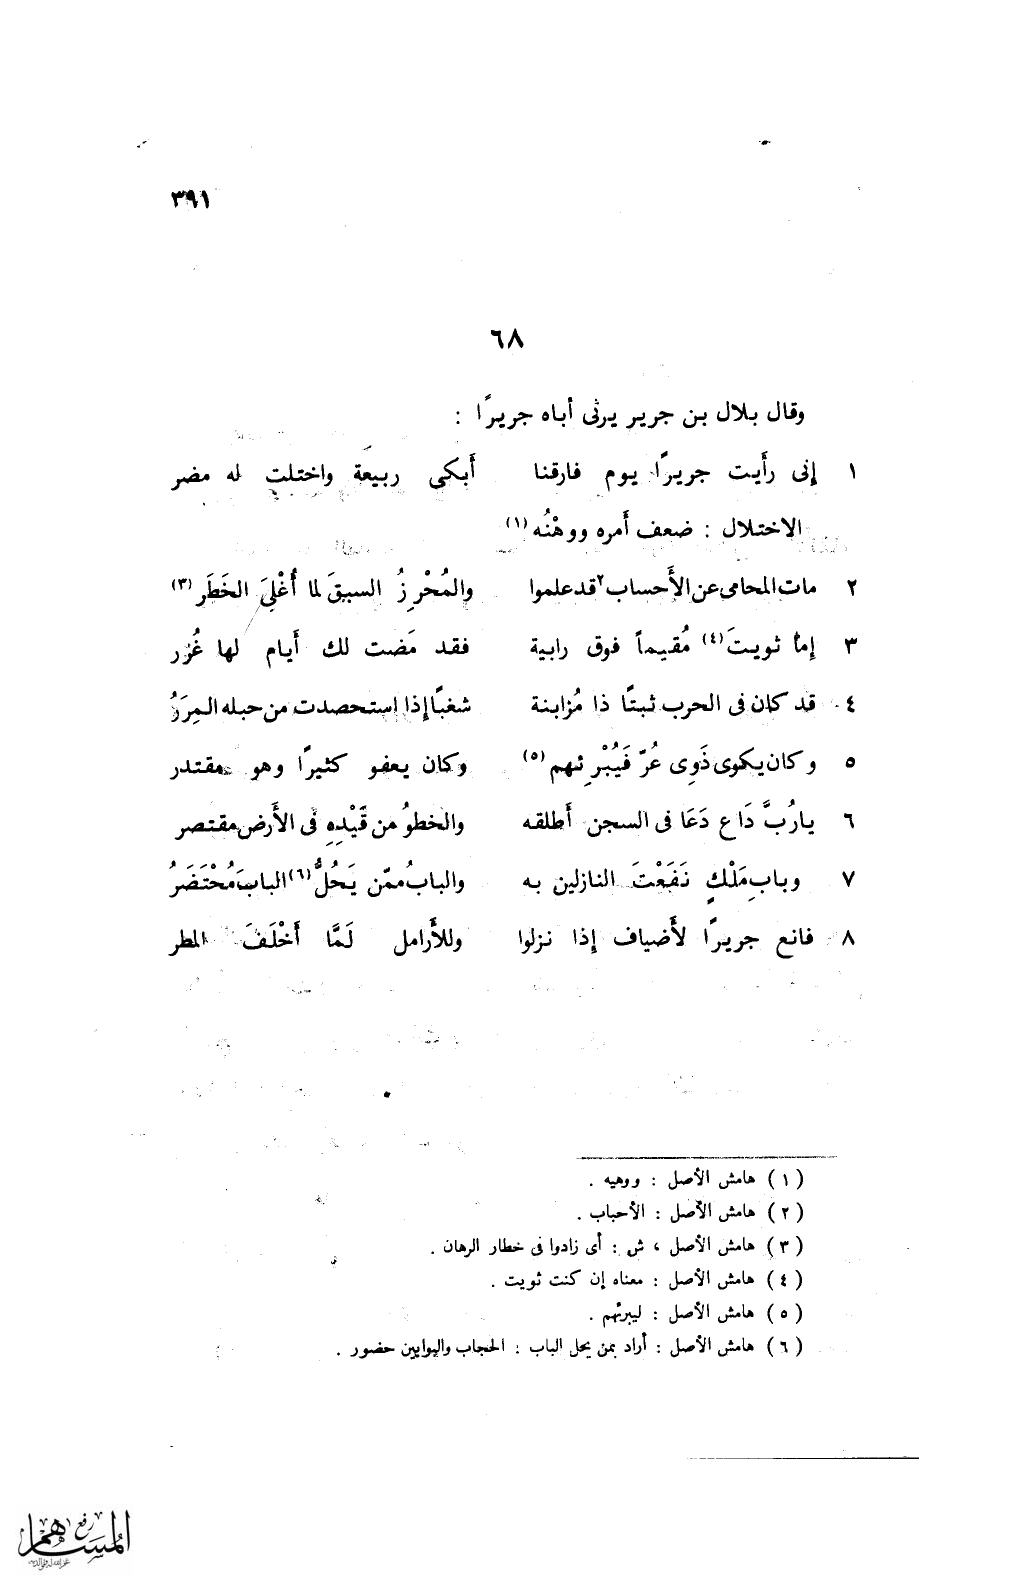 ٣٩١
٦٨
وقال بلال بن جرير يرثى أباه جريرًا :
١ إنى رأَيت جريرًا يوم فارقنا أَبكى ربيعة واختلت له مضر
الاختلال : ضعف أَمره ووهْنُه (١)
٢ مات المحامى عن الأَحساب ٢ قد علموا والمُحْرِزُ السبقَ لما أُغْلِىَ الخَطَر (٣)
٣ إما ثويتَ (٤) مُقيماً فوق رابية فقد مَضت لك أَيام لها غُرَر
٤ قد كان فى الحرب ثبتًا ذا مُزابنة شغبًا إذا استحصدت من حبله المِرَرُ
٥ وكان يكوى ذَوِى عُرّ فَيُبْرِئهم (٥) وكان يعفو كثيرًا وهو مقتدر
٦ يارُبَّ دَاعٍ دَعَا فى السجن أَطلقه والخطوُ من قَيْدِهِ فى الأَرض مقتصر
٧ وبابِ مَلْكٍ نَفَعْتَ النازلين به والبابُ ممّن يَحُلُّ (٦) البابَ مُحْتَضَرُ
٨ فانع جريرًا لأَضياف إذا نزلوا وللأَرامل لَمَّا أَخْلَفَ المطر
(١) هامش الأصل : ووهيه .
(٢) هامش الأصل : الأحباب .
(٣) هامش الأصل ، ش : أى زادوا فى خطار الرهان .
(٤) هامش الأصل : معناه إن كنت ثويت .
(٥) هامش الأصل : ليبرئهم .
(٦) هامش الأصل : أراد بمن يحل الباب : الحجاب والبوابين حضور .